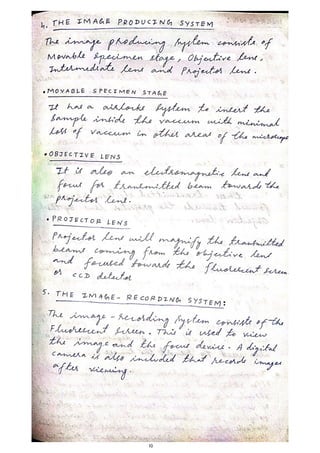 4. THE IMAGE PRODUCING SYSTEM
The image producing system consists of
Movable specimen stage, Objective lens,
Intermediate lens and Projector lens.
• MOVABLE SPECIMEN STAGE
It has a airlocks system to insert the
sample inside the vaccum with minimal
loss of vaccum in other areas of the microscope
• OBJECTIVE LENS
It is also an electromagnetic lens and
focus for transmitted beam towards the
projector lens.
• PROJECTOR LENS
Projector lens will magnify the transmitted
beams coming from the objective lens
and focused towards the fluorescent screen
or CCD detector
5. THE IMAGE-RECORDING SYSTEM:
The image-recording system consists of the
Fluorescent screen. This is used to view
the image and the focus device. A digital
camera is also included that records images
after viewing.
10